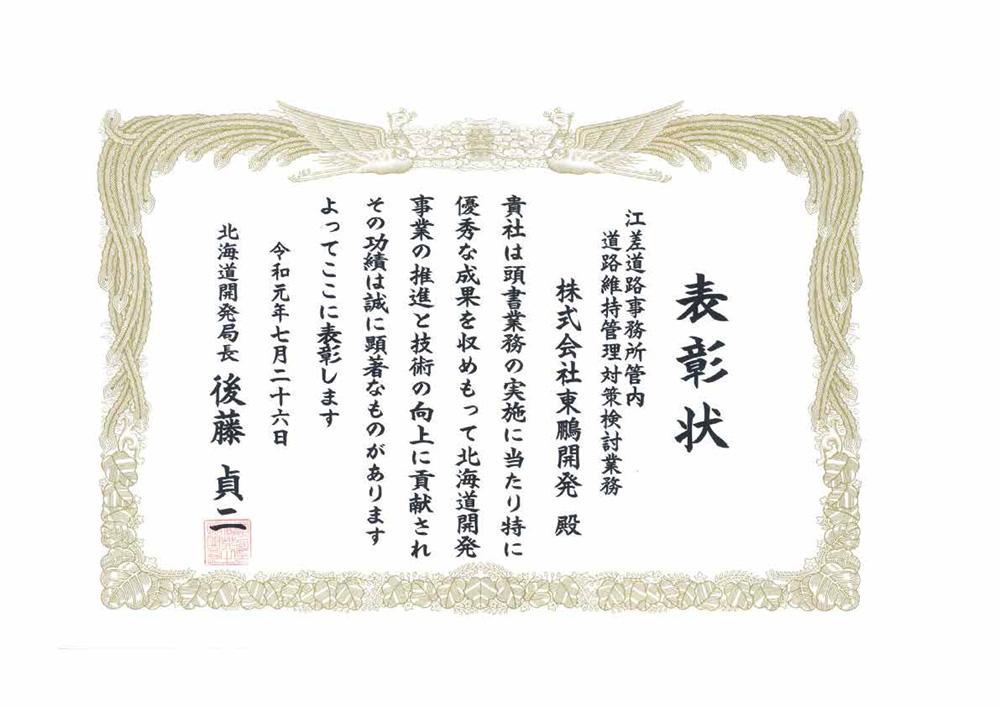 表彰状
江差道路事務所管内
道路維持管理対策検討業務
株式会社東鵬開発 殿
貴社は頭書業務の実施に当たり特に
優秀な成果を収めもって北海道開発
事業の推進と技術の向上に貢献され
その功績は誠に顕著なものがあります
よってここに表彰します
令和元年七月二十六日
北海道開発局長 後藤 貞二